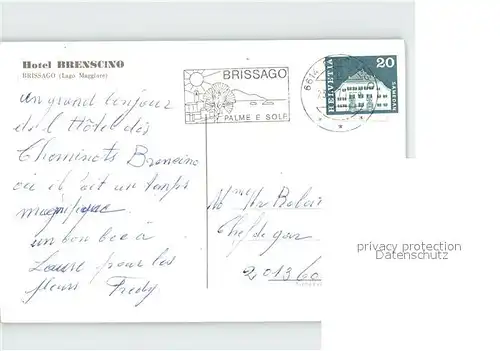 Hotel BRENSCINO
BRISSAGO (Lago Maggiore)
BRISSAGO
PALME E SOLE
6614
HELVETIA 20
SAMEDAN
un grand bonjour
de l'Hôtel des
Cheminots Brencino
où il fait un temps
magnifique
un bon bec à
Laure pour les
fleurs Fredy
Chef de gare
2013 Co
privacy protection
Datenschutz